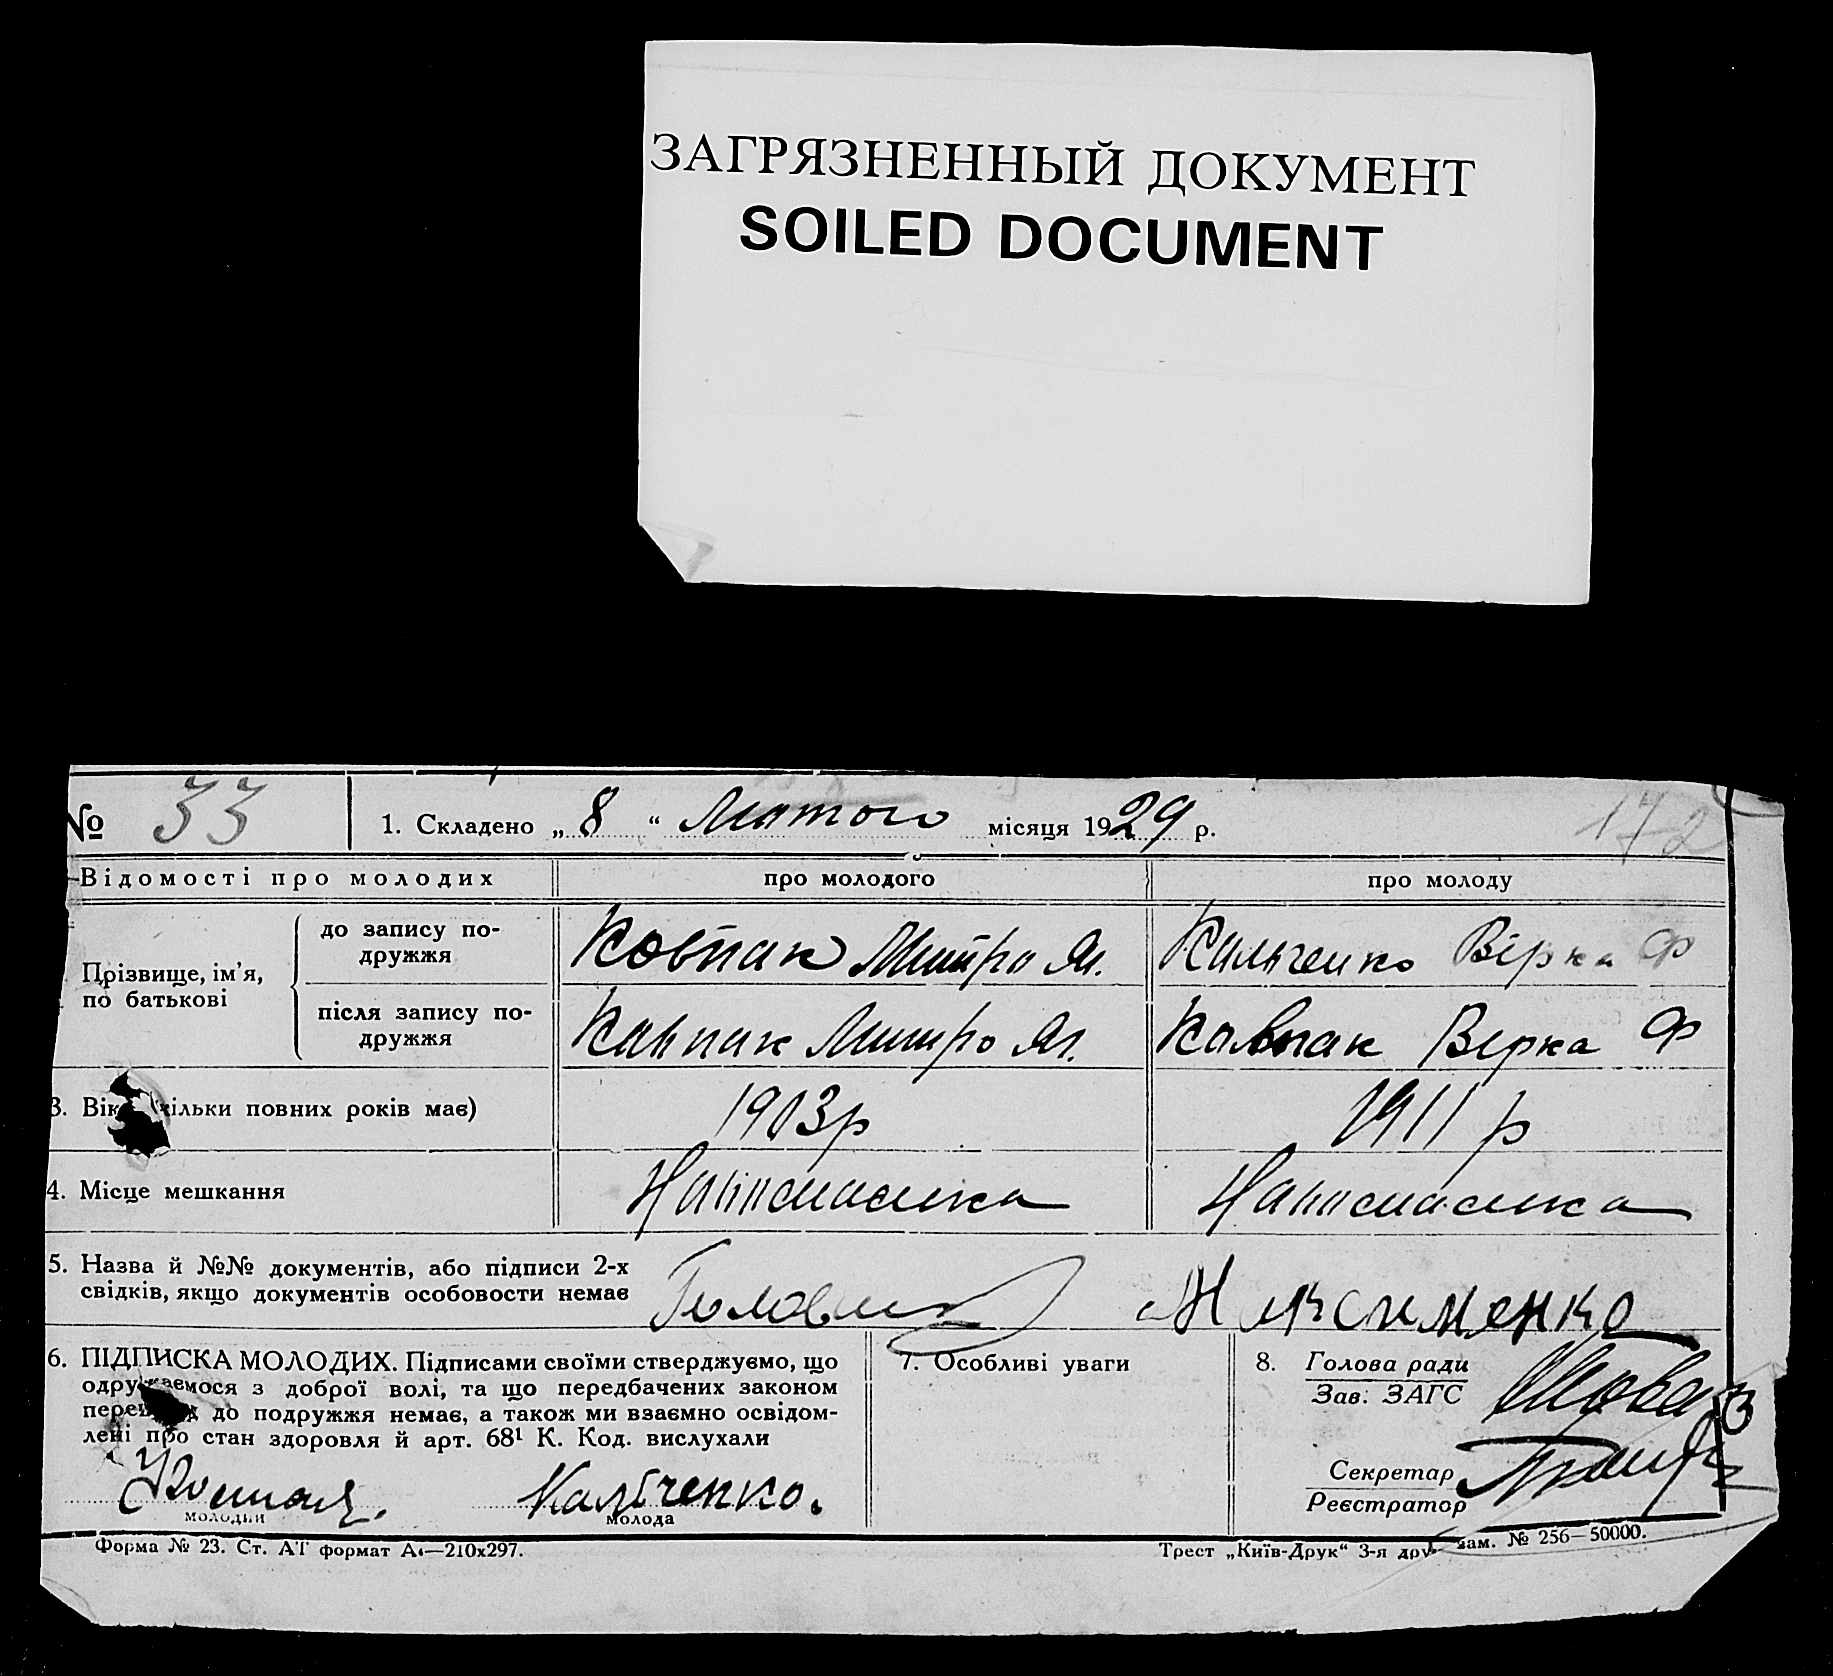 ЗАГРЯЗНЕННЫЙ ДОКУМЕНТ
SOILED DOCUMENT
№ 33
1. Складено „ 8 “ Лютого місяця 1929 р.
172
Відомості про молодих
про молодого
про молоду
Прізвище, ім’я,
по батькові
до запису по-
дружжя
Ковпак Митро Як.
Кальченко Вірка Ф
після запису по-
дружжя
Ковпак Митро Як.
Ковпак Вірка Ф
3. Вік (скільки повних років має)
1903р
1911 р
4. Місце мешкання
5. Назва й №№ документів, або підписи 2-х
свідків, якщо документів особовости немає
Максименко
6. ПІДПИСКА МОЛОДИХ. Підписами своїми стверджуємо, що
одружуємося з доброї волі, та що передбачених законом
перешкод до подружжя немає, а також ми взаємно освідом-
лені про стан здоров’я й арт. 68¹ К. Код. вислухали
Кальченко.
молодий
молода
7. Особливі уваги
8. Голова ради
Зав. ЗАГС
Секретар
Реєстратор
Форма № 23. Ст. АТ формат А4—210x297.
Трест „Київ-Друк“ 3-я друк. зам. № 256—50000.